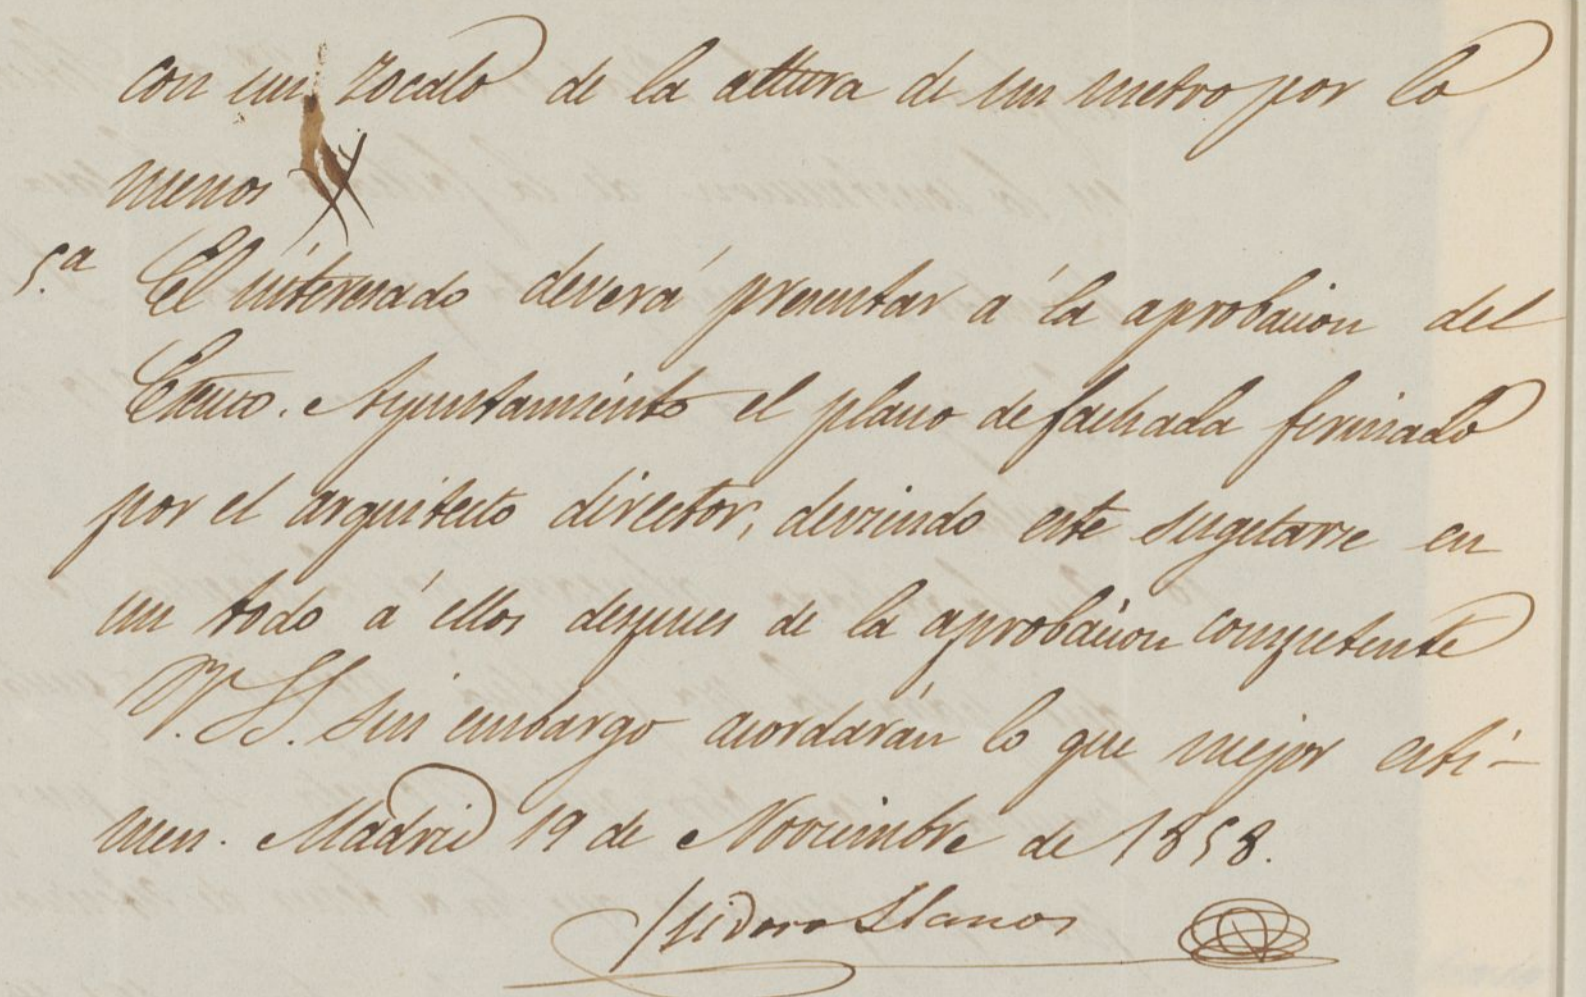 con un zocalo de la altura de un metro por lo
menos
5.a El interesado deverá presentar á la aprobacion del
Excmo. Ayuntamiento el plano de fachada firmado
por el arquitecto director, deviendo este sugetarse en
un todo á ellos despues de la aprobacion competente
V. SS. sin embargo acordarán lo que mejor esti-
men. Madrid 19 de Noviembre de 1858.
Isidoro Llanos